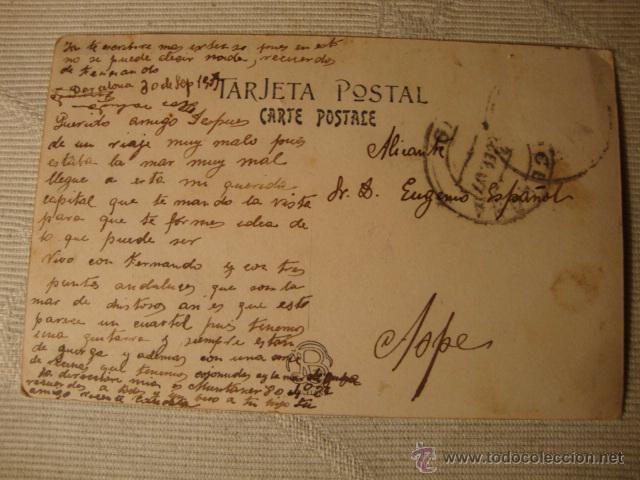 Ya te escribiré mas extenso pues en est
no se puede decir nada, recuerdos
de Fernando
Barcelona 20 de Sep 19
TARJETA POSTAL
CARTE POSTALE
Querido amigo Despues
de un viaje muy malo pues
estaba la mar muy mal
llegue a esta mi querida
capital que te mando la vista
para que te formes idea de
lo que puede ser
Vivo con Fernando y con tres
puntos andaluces que son la
mar de chistosos asi es que esto
parece un cuartel pues tenemos
una guitarra y siempre estan
de juerga y ademas con una
de que tenemos
la direccion mia es Muntaner 80
recuerdos a y un beso a tu hijo tu
amigo
Alicante
Sr. D. Eugenio Español
Aspe
www.todocoleccion.net